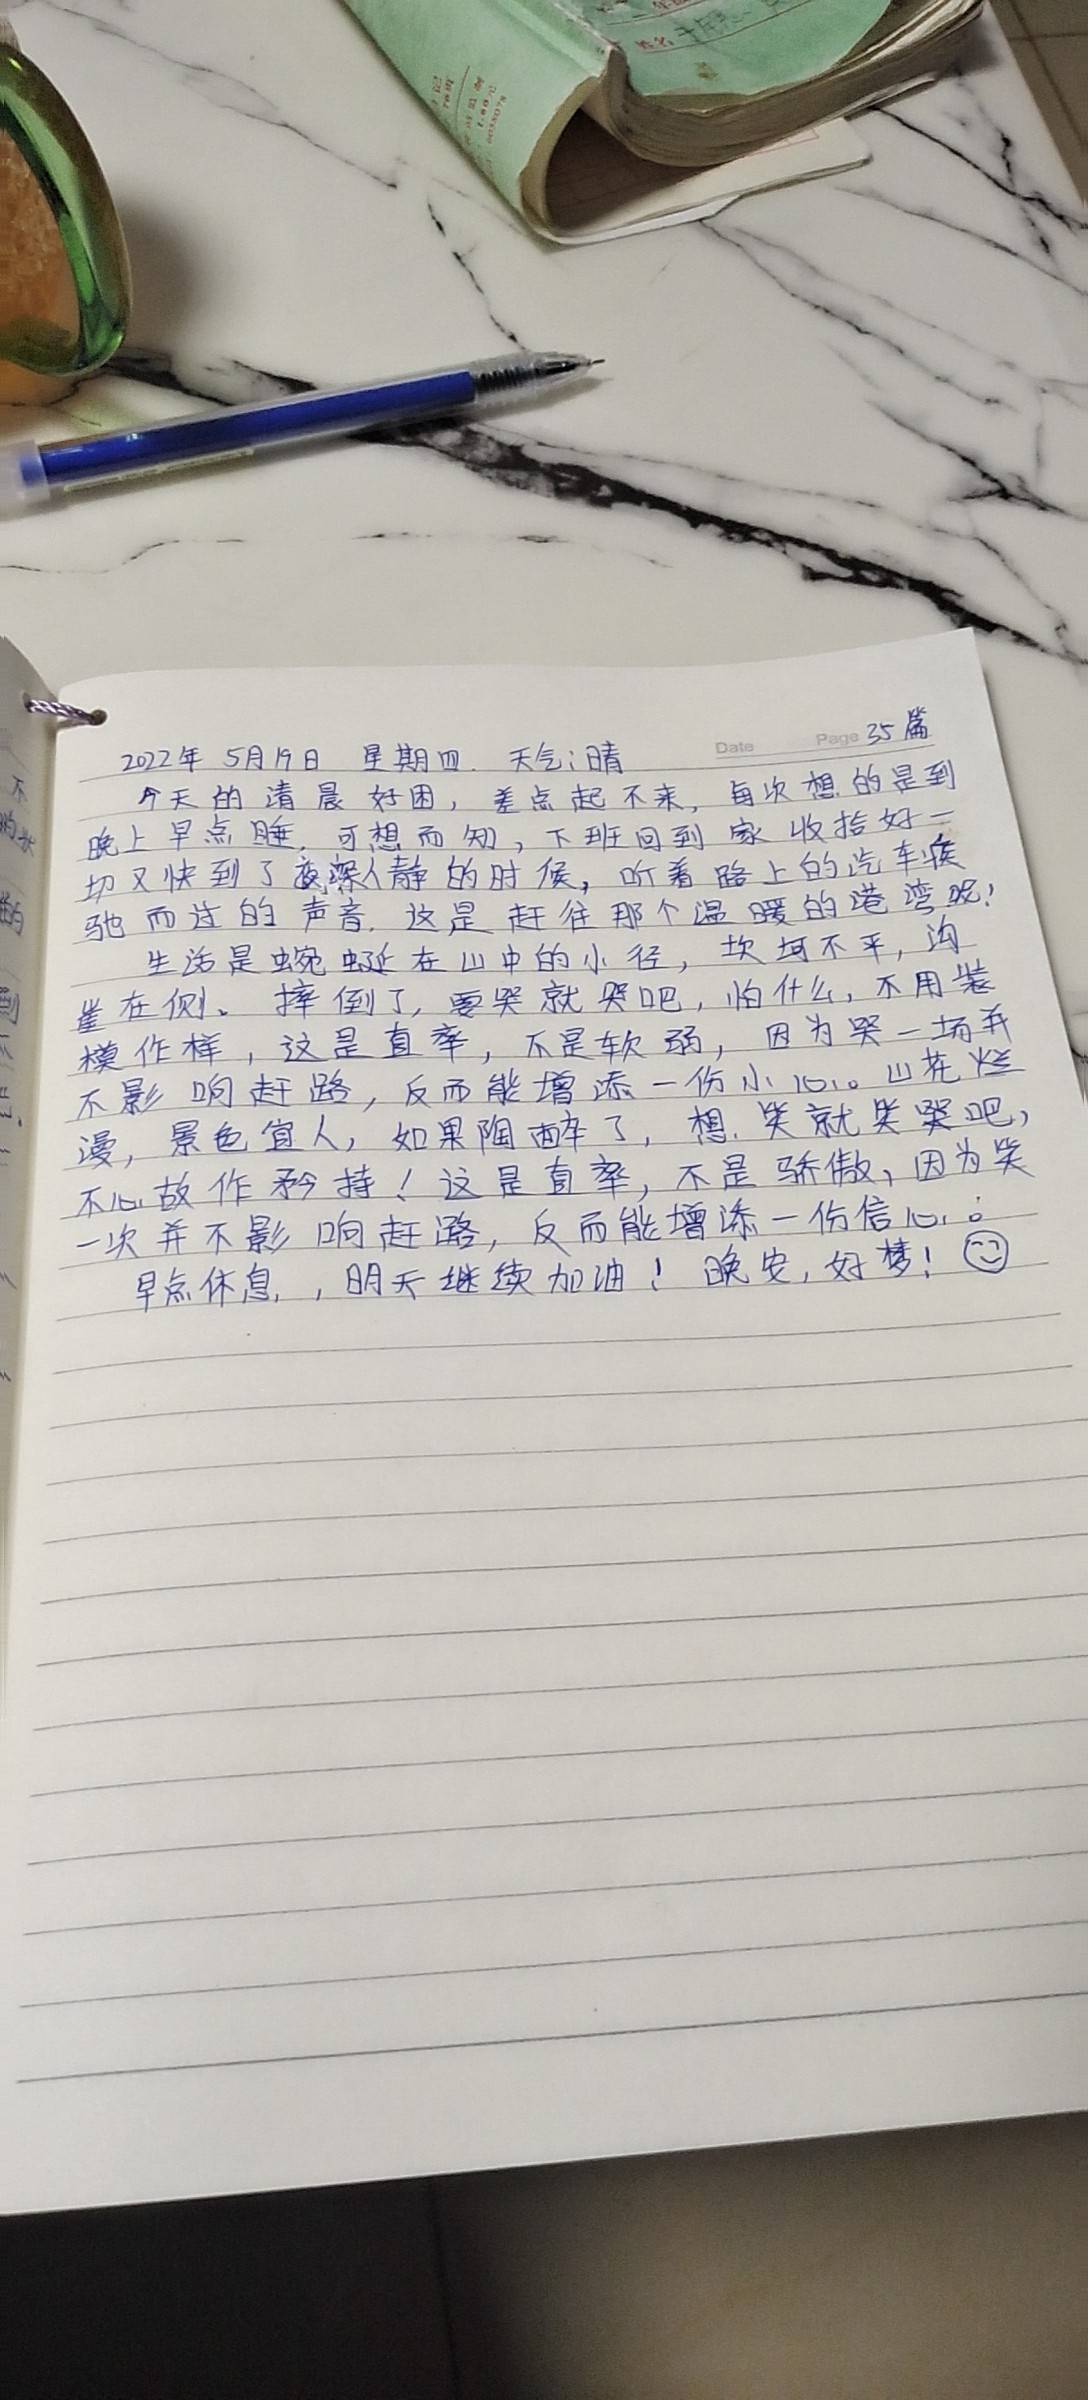 姓名
1.80元
Date Page 35篇
2022年 5月19日 星期四. 天气:晴
今天的清晨好困，差点起不来，每次想的是到
晚上早点睡，可想而知，下班回到家收拾好一
切又快到了夜深人静的时候，听着路上的汽车疾
驰而过的声音，这是赶往那个温暖的港湾呢！
生活是蜿蜒在山中的小径，坎坷不平，沟
崖在侧。摔倒了，要哭就哭吧，怕什么，不用装
模作样，这是直率，不是软弱，因为哭一场并
不影响赶路，反而能增添一份小心。山花烂
漫，景色宜人，如果陶醉了，想笑就笑哭吧，
不心故作矜持！这是直率，不是骄傲，因为笑
一次并不影响赶路，反而能增添一份信心。
早点休息，，明天继续加油！晚安，好梦！